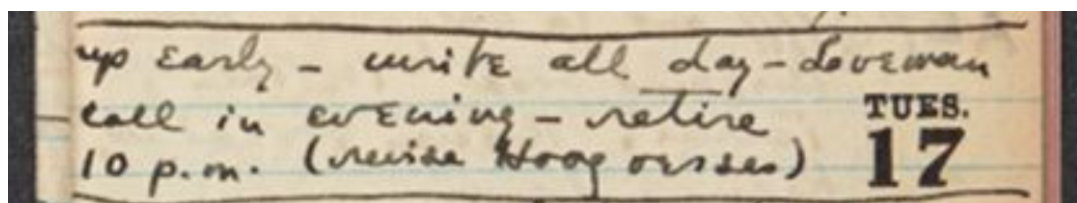 up early – write all day – Loveman
call in evening – retire
10 p.m. (revise Hoag verses)
TUES.
17